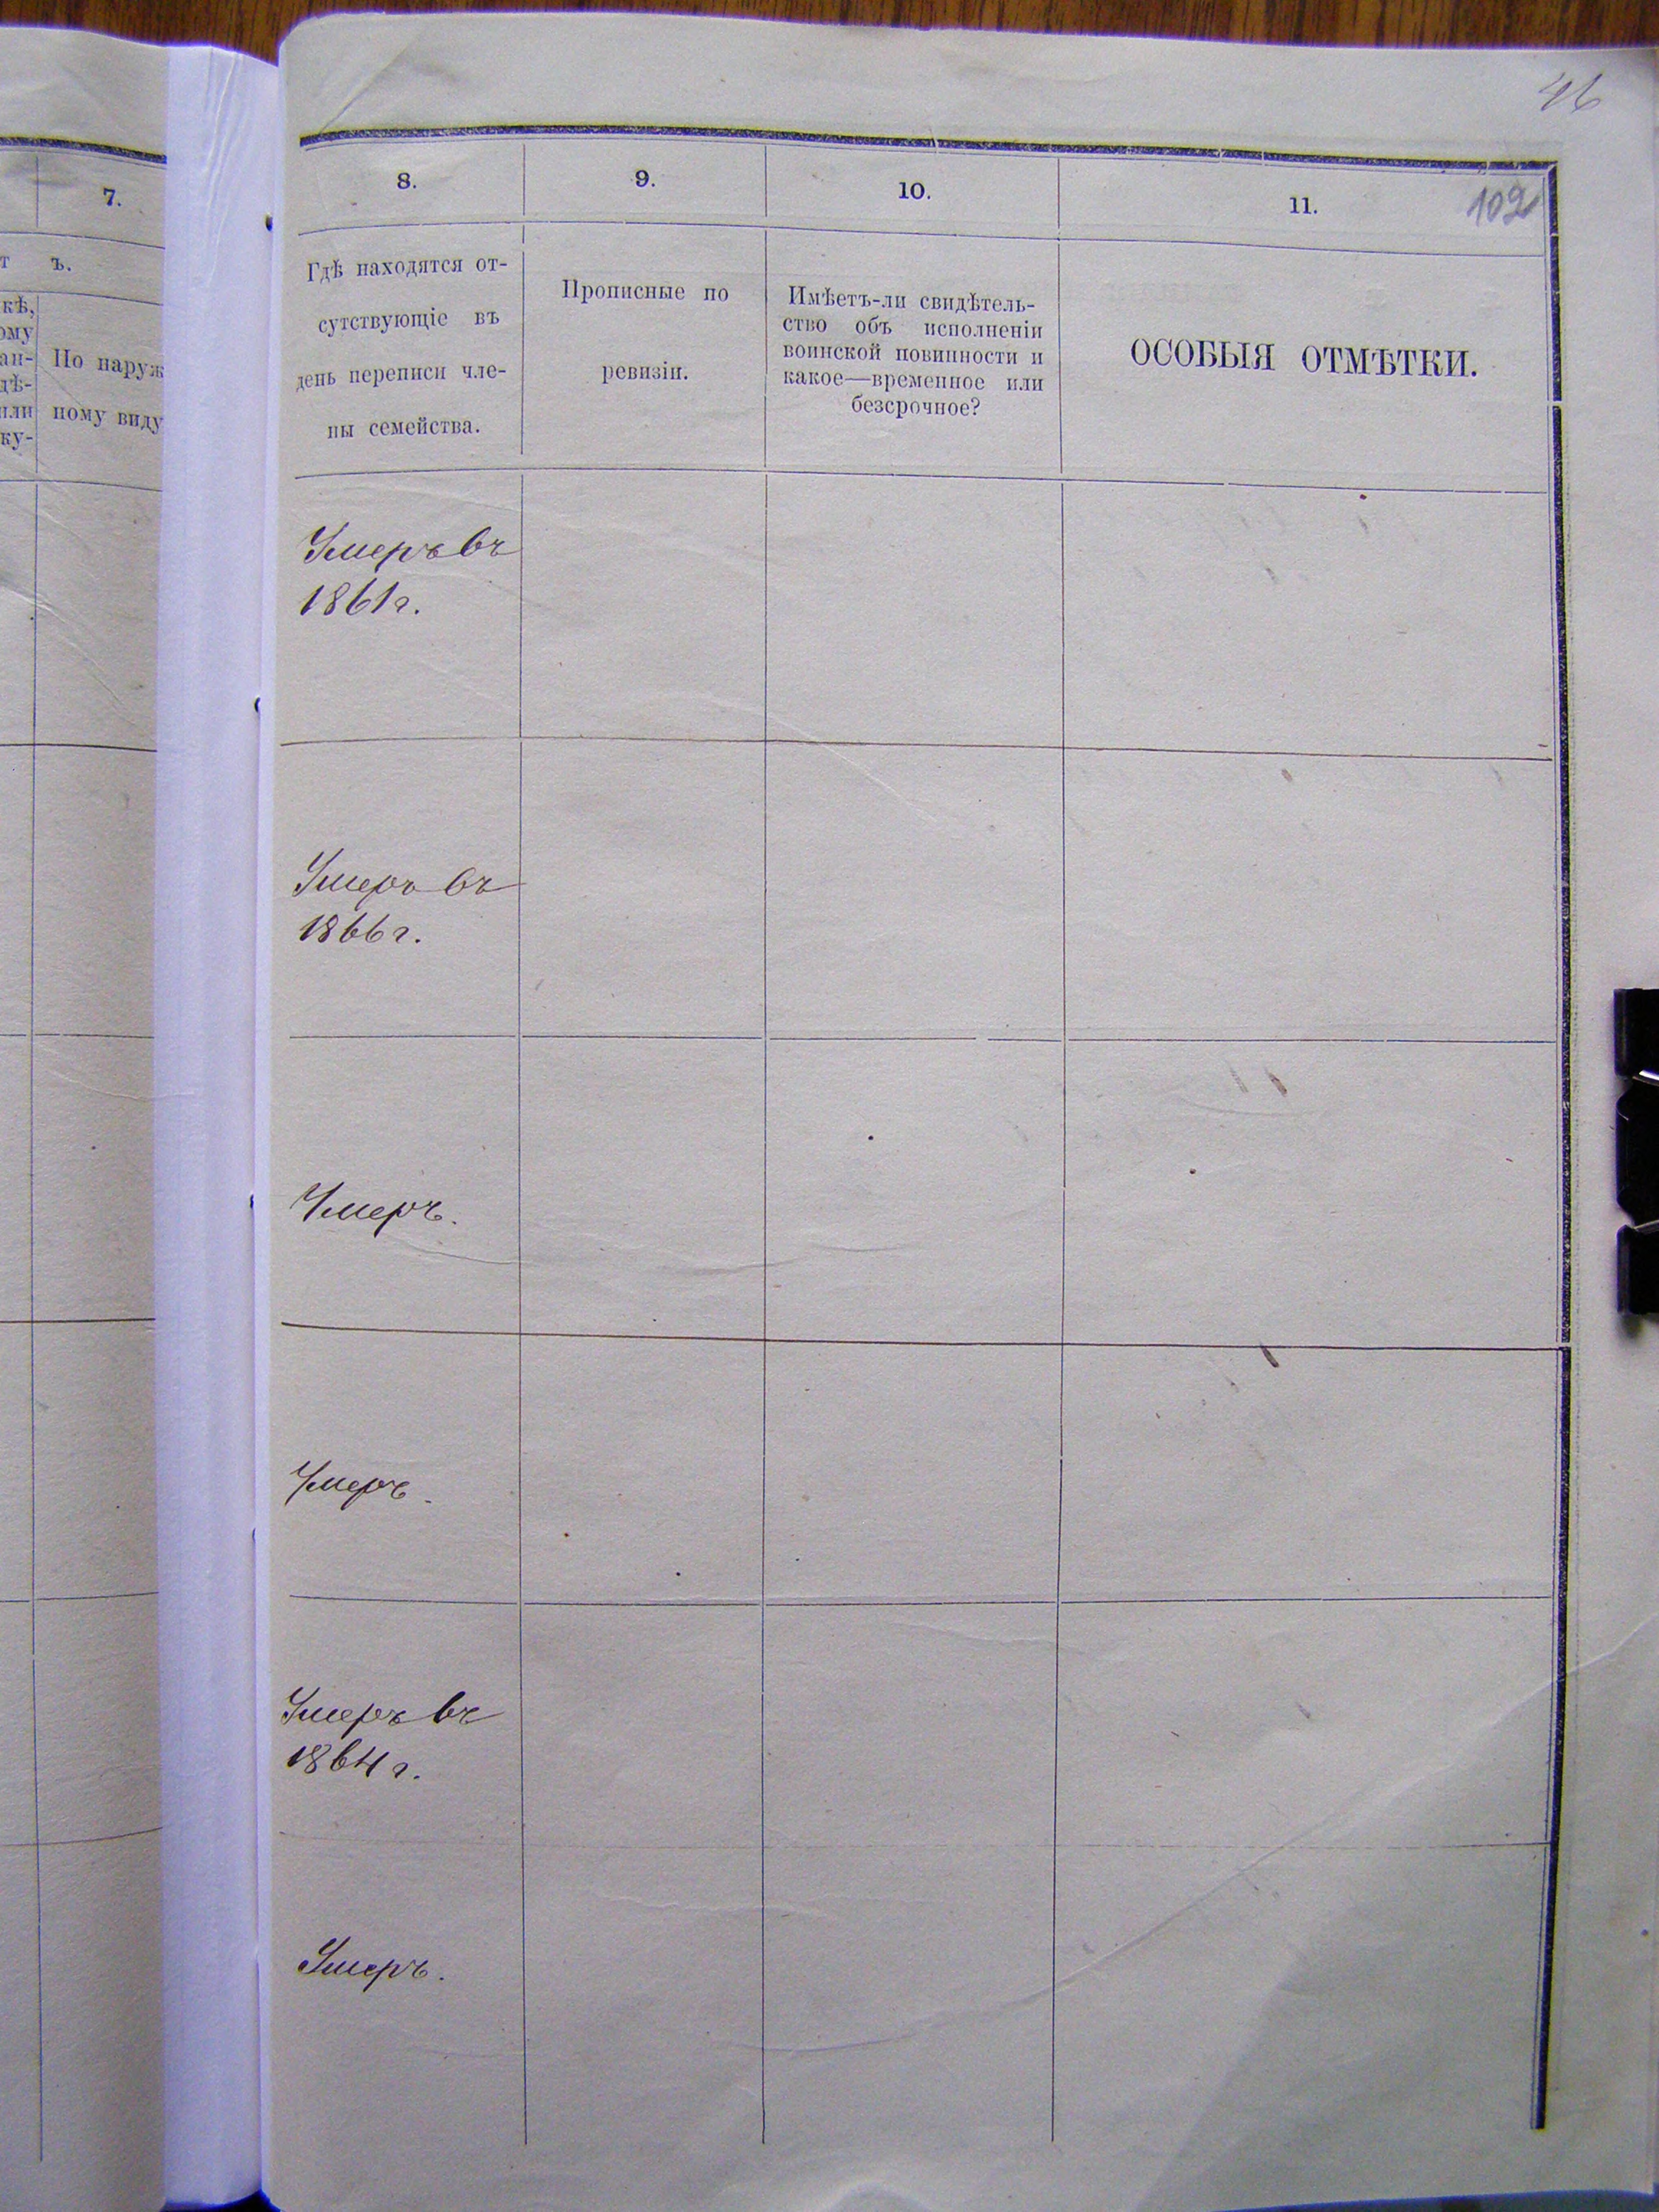 46
7.
т ъ.
кѣ,
ому
ан-
дѣ-
или
ку-
По наруж
ному виду
8.
9.
10.
11.
102
Гдѣ находятся от-
сутствующіе въ
день переписи чле-
ны семейства.
Прописные по
ревизіи.
Имѣетъ-ли свидѣтель-
ство объ исполненіи
воинской повинности и
какое—временное или
безсрочное?
ОСОБЫЯ ОТМѢТКИ.
Умеръ въ
1861 г.
Умеръ въ
1866 г.
Умеръ.
Умеръ.
Умеръ въ
1864 г.
Умеръ.